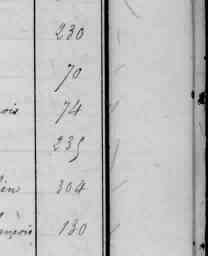 230
70
ois 74
235
lien 304
ançois 130